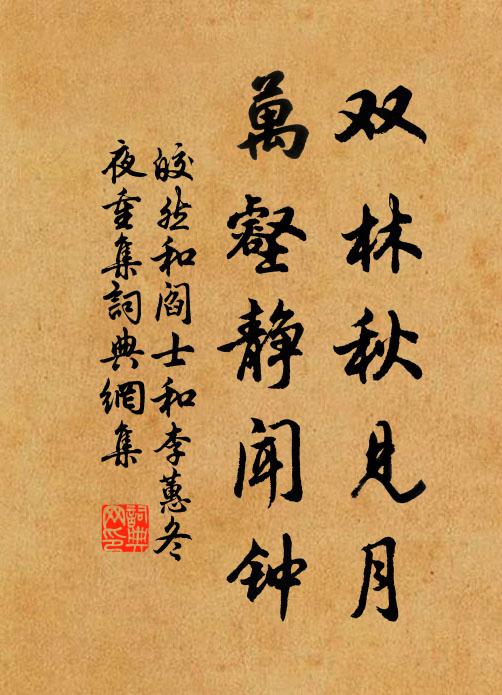 双林秋见月
萬壑静闻钟
皎然和阎士和李蕙冬
夜重集詞典網集
詞典网印